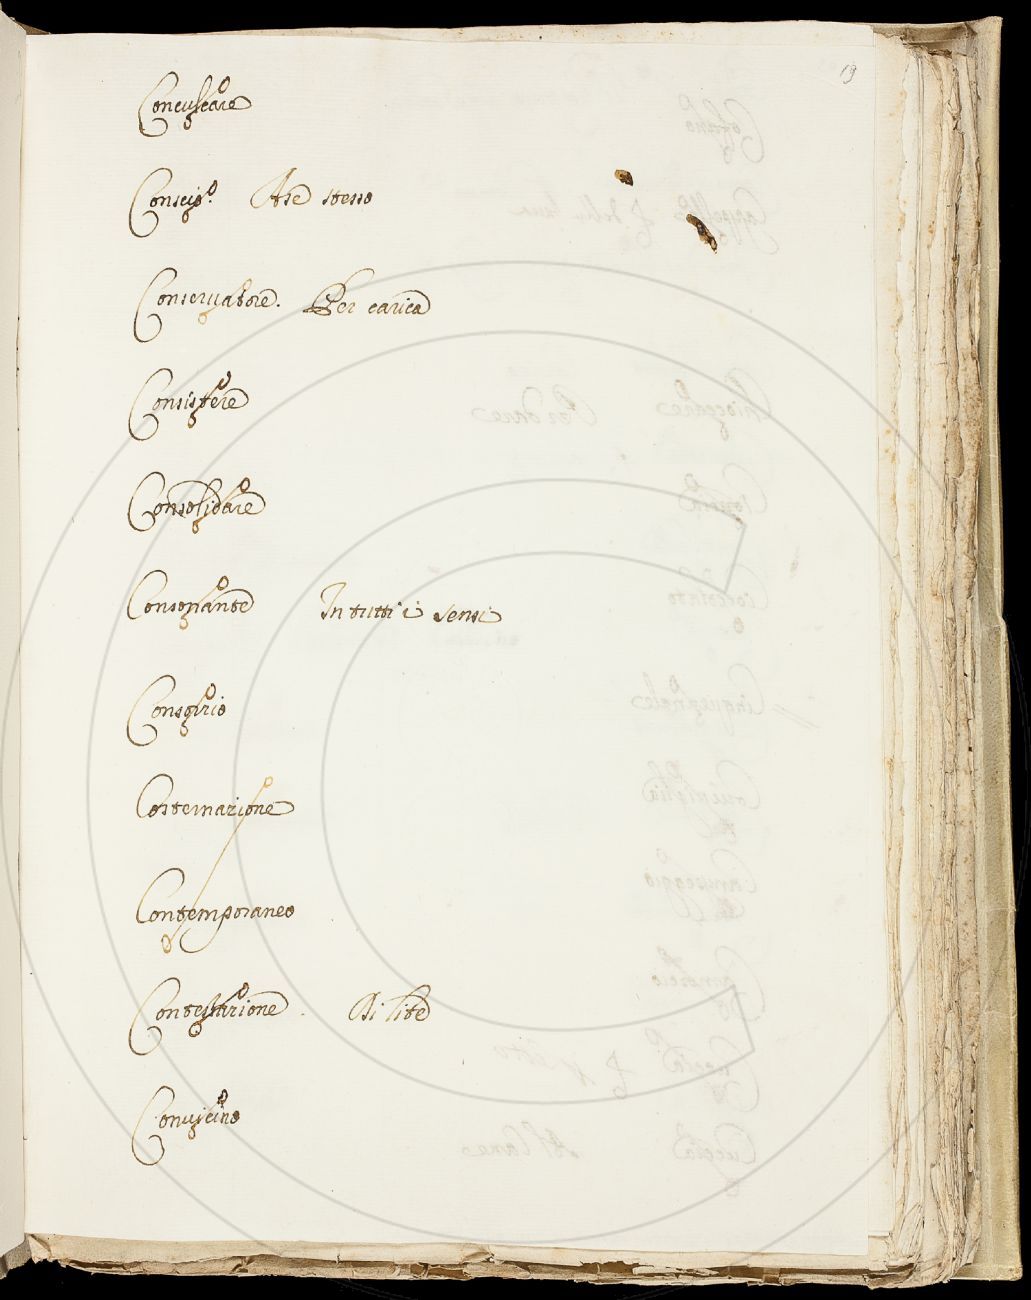 19
Conculcare
Conscio. A se stesso
Conservatore. Per carica
Consistere
Consolidare
Consonante In tutti i sensi
Consorzio
Costernazione
Contemporaneo
Contestazione. Di lite
Convicino